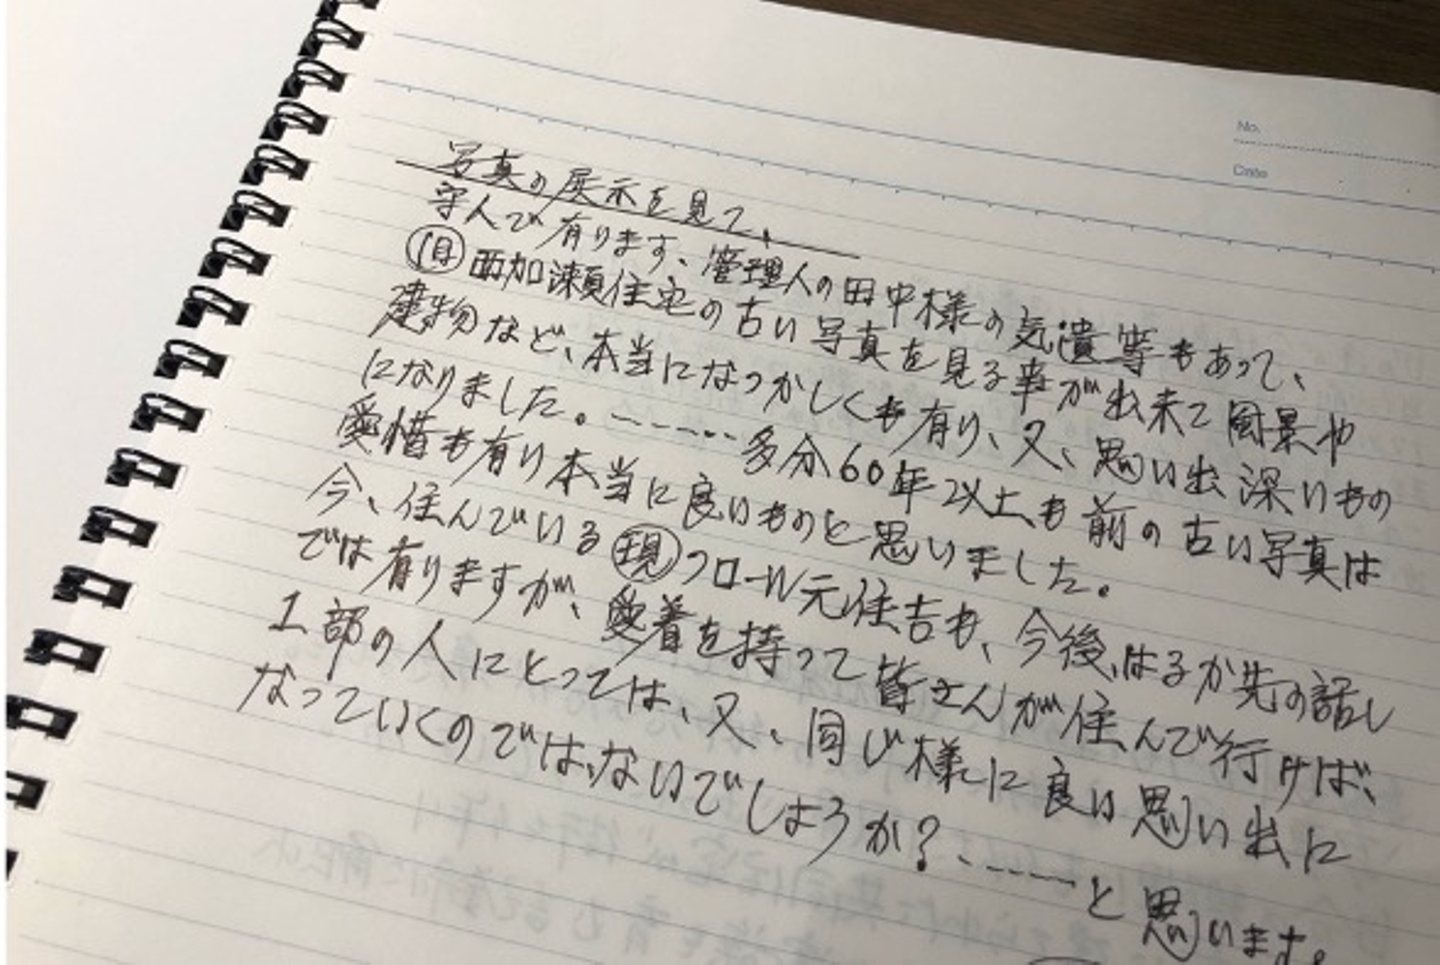 No.
Date
写真の展示を見て、
守人で有ります、管理人の田中様の気遣等もあって、
旧西加瀬住宅の古い写真を見る事が出来て風景や
建物など、本当になつかしくも有り、又、思い出深いもの
になりました。------多分60年以上も前の古い写真は
愛惜も有り本当に良いものと思いました。
今、住んでいる現フロール元住吉も、今後、はるか先の話し
では有りますが、愛着を持って皆さんが住んで行けば、
1部の人にとっては、又、同じ様に良い思い出に
なっていくのでは、ないでしょうか?------と思います。